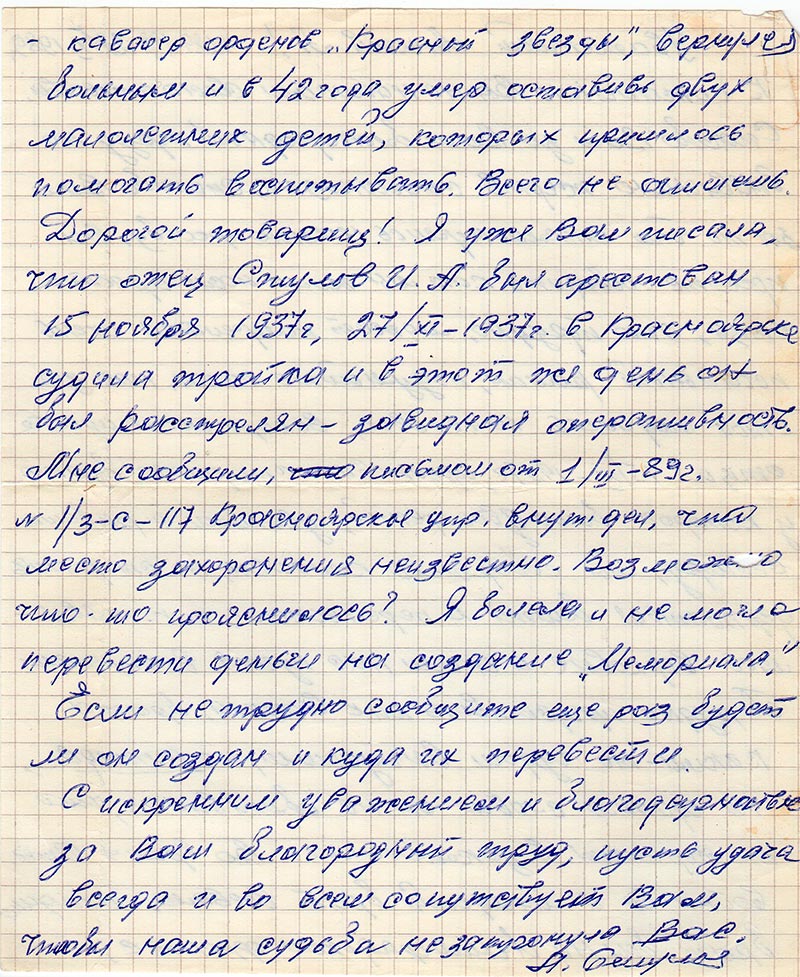 - кавалер орденов „Красный звезды", вернулся
больным и в 42 года умер оставивь двух
малолетних детей, которых пришлось
помогать воспитывать. Всего не опишешь.
Дорогой товарищ! Я уже Вам писала,
что отец Стулов И. А. был арестован
15 ноября 1937г, 27/XI-1937г. в Красноярске
судила тройка и в этот же день он
был расстрелян - завидная оперативность.
Мне сообщили, что письмом от 1/III-89г.
№ 11/3-С-117 Красноярское упр. внут. дел, что
место захоронения неизвестно. Возможно
что-то прояснилось? Я болела и не могла
перевести деньги на создание „Мемориала".
Если не трудно сообщите еще раз будет
ли он создан и куда их перевести.
С искренним уважением и благодарностью
за Ваш благородный труд, пусть удача
всегда и во всем сопутствует Вам,
чтобы наша судьба не затронула Вас.